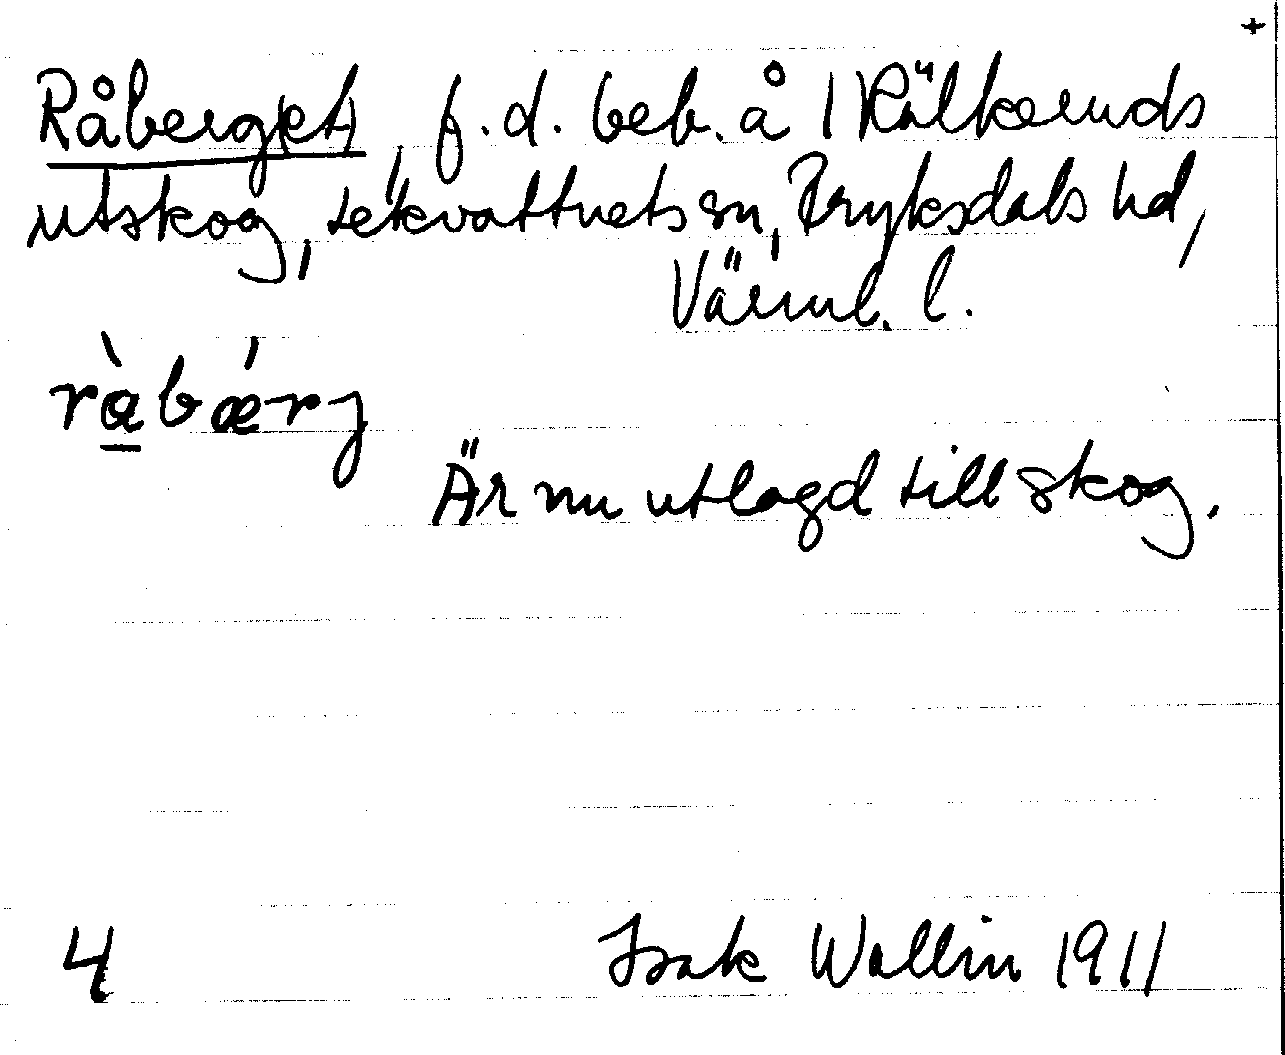 +
Råberg(et), f.d. beb. å 1 Rälkeruds
utskog, Lekvattnets sn, Fryksdals hd,
Värml. l.
rà̱bǽrj
Är nu utlagd till skog.
4 Isak Wallin 1911